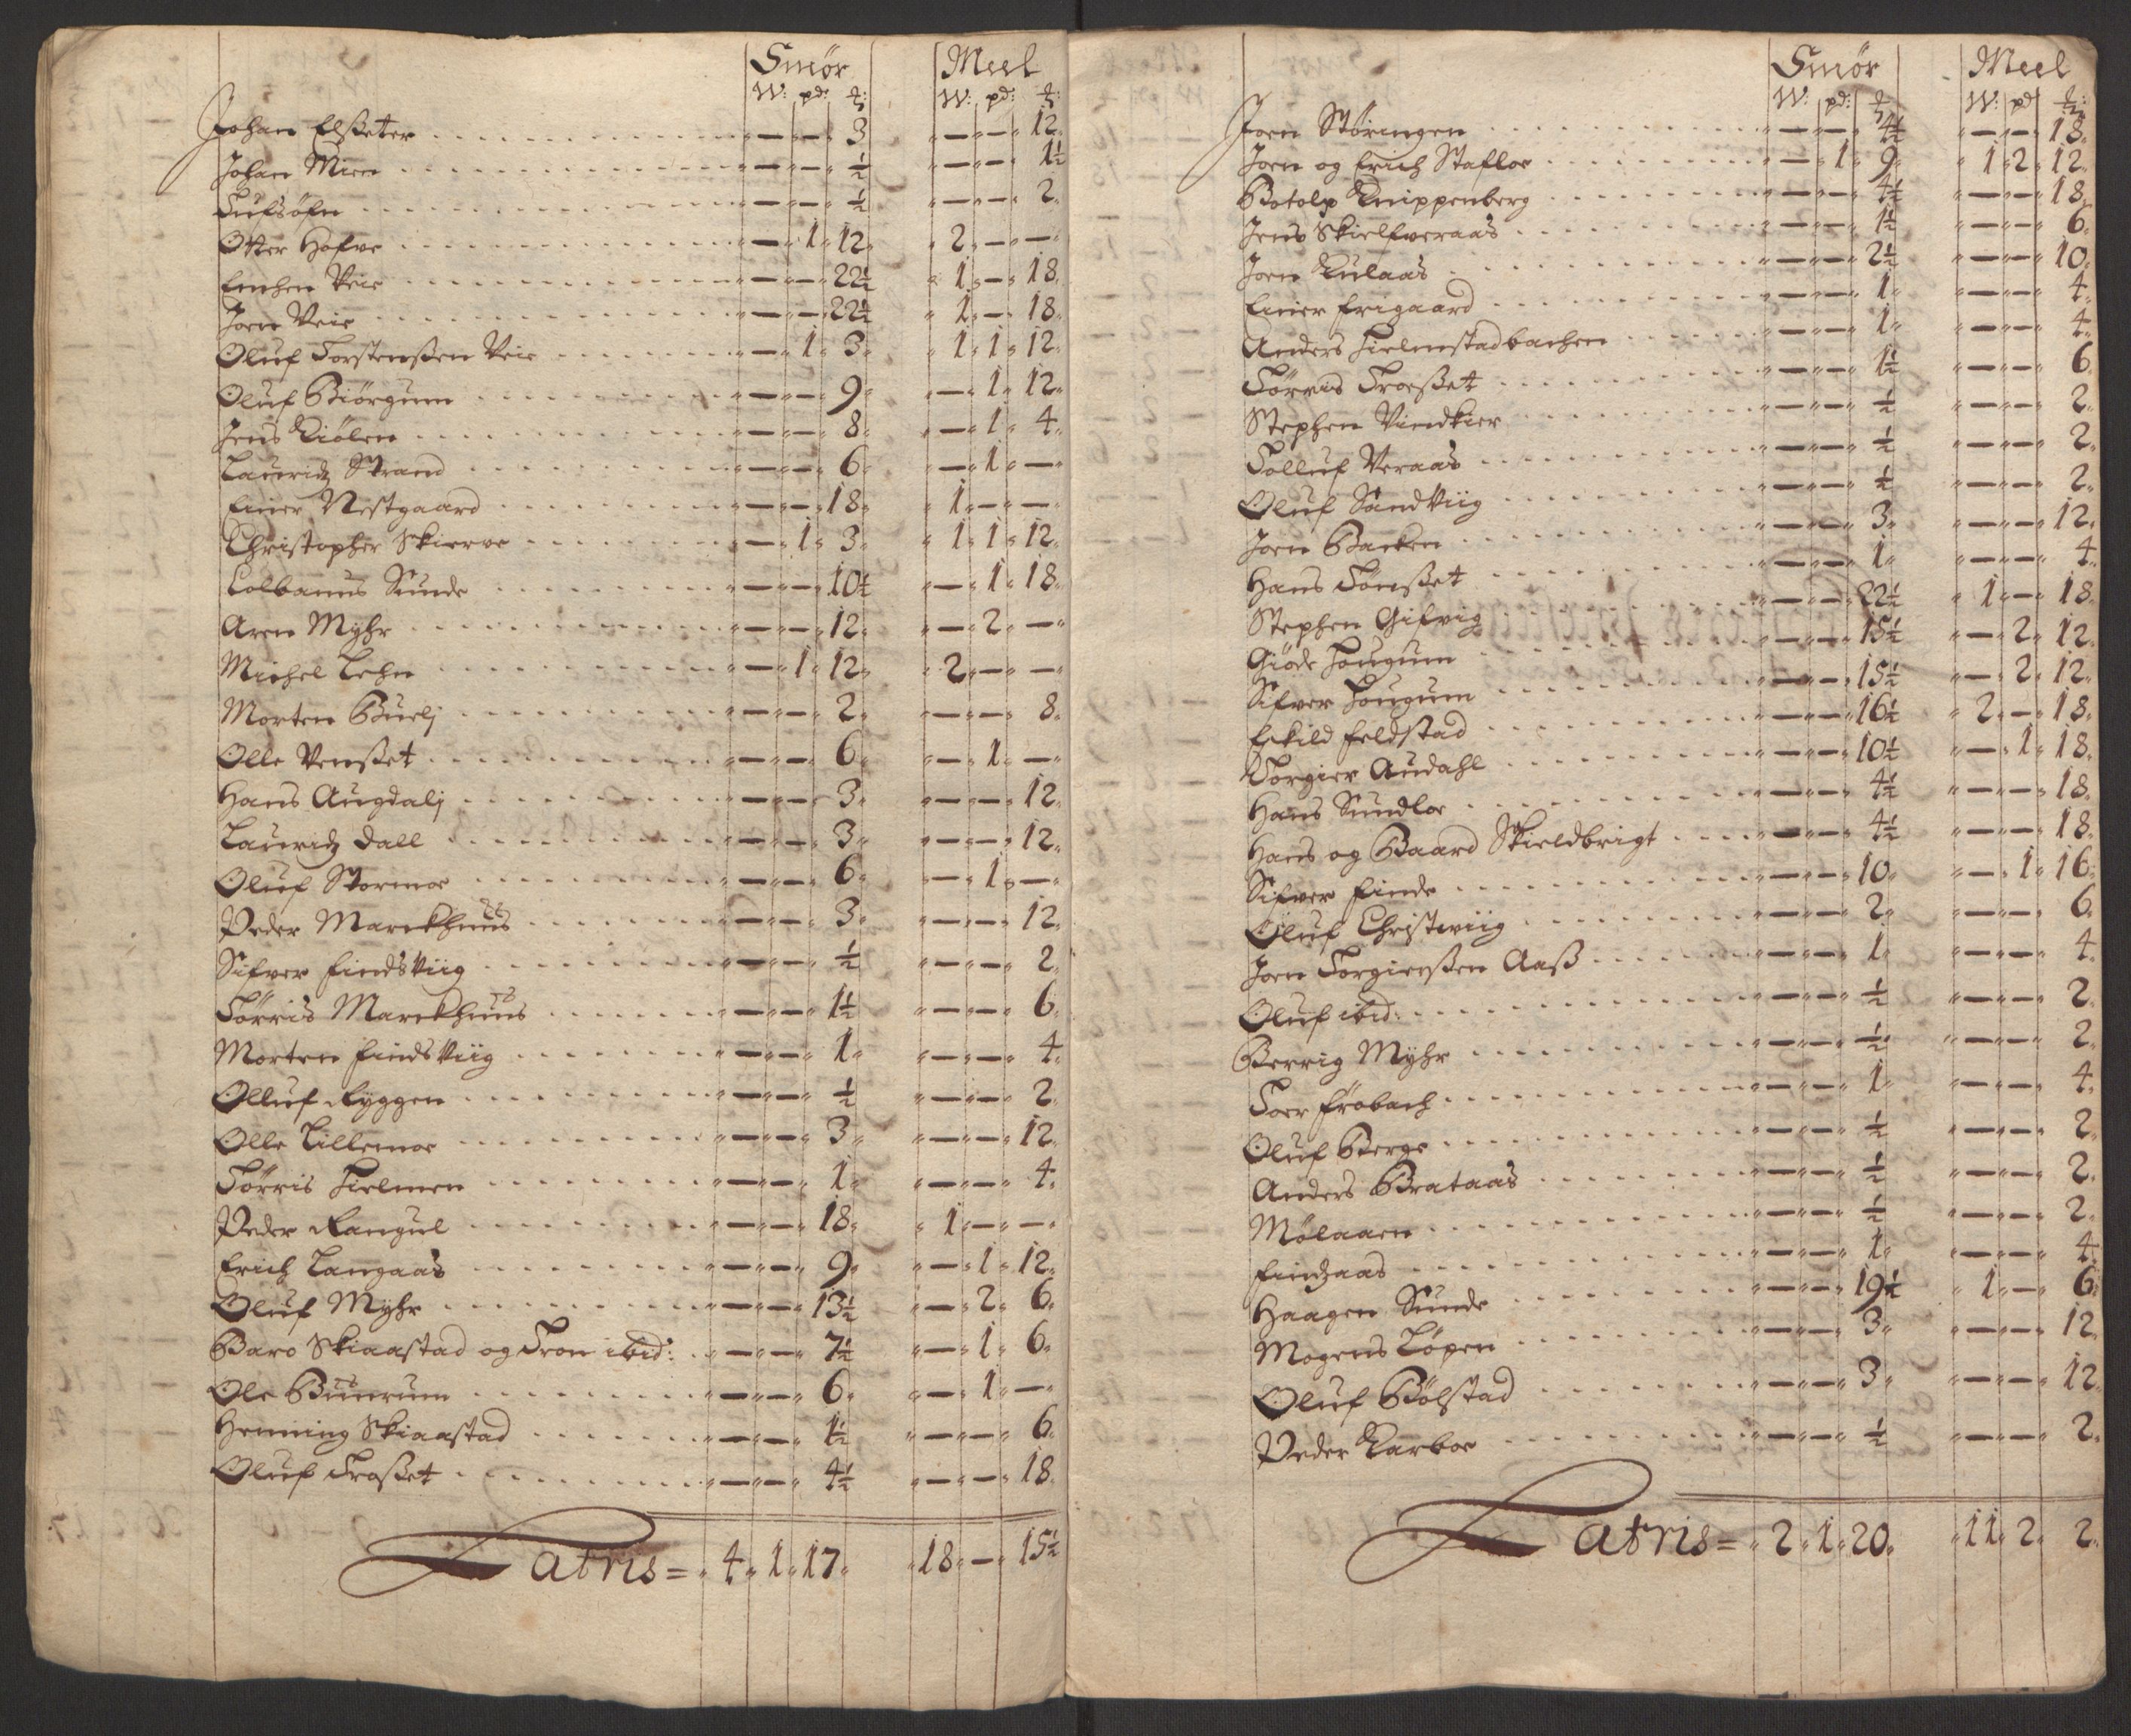 Smør Meel
W: pd: ℔: W: pd: ℔:
Johan Elsseter — — 3 — — 12
Johan Mien — — ½ — — 1½
Tufsøfn — — ½ — — 2
Otter Hofve — 1 12 2 — —
Enchen Veie — — 22½ 1 — 18
Joen Veie — — 22½ 1 — 18
Oluf Torstenssen Veie — 1 3 1 1 12
Oluf Biørgum — — 9 — 1 12
Jens Kiølen — — 8 — 1 4
Lauridz Strand — — 6 — 1 —
Einer Nestgaard — — 18 1 — —
Christopher Skierve — 1 3 1 1 12
Colbanus Sunde — — 10½ — 1 18
Aren Myhr — — 12 — 2 —
Michel Lehn — 1 12 2 — —
Morten Buelj — — 2 — — 8
Olle Vensset — — 6 — 1 —
Hans Augdalj — — 3 — — 12
Lauridz Dall — — 3 — — 12
Oluf Stormoe — — 6 — 1 —
Peder Marckhuus — — 3 — — 12
Sifver Findsviig — — ½ — — 2
Tørris Marckhuus — — 1½ — — 6
Morten Findsviig — — 1 — — 4
Olluf Ryggen — — ½ — — 2
Olle Lillemoe — — 3 — — 12
Tørris Hielmen — — 1 — — 4
Peder Rangul — — 18 1 — —
Erich Langaas — — 9 — 1 12
Oluf Myhr — — 13½ — 2 6
Baro Skiaastad og Tron ibid: — — 7½ — 1 6
Ole Buuerum — — 6 — 1 —
Henning Skiaastad — — 1½ — — 6
Oluf Trosset — — 4½ — — 18
Latris = 4 1 17 18 — 15½
Smør Meel
W: pd: ℔: W: pd ℔:
Joen Støringen — — 4½ — — 18
Joen og Erich Stafloe — 1 9 1 2 12
Botolp Knippenberg — — 4½ — — 18
Jens Skielfveraas — — 1½ — — 6
Joen Kulaas — — 2½ — — 10
Einer Erigaard — — 1 — — 4
Anders Hielmstadbachen — — 1 — — 4
Tørris Troesset — — 1½ — — 6
Stephen Vindkier — — ½ — — 2
Tolluf Veraas — — ½ — — 2
Oluf Sandviig — — ½ — — 2
Joen Backen — — 3 — — 12
Hans Tønsset — — 1 — — 4
Stephen Gifvig — — 22½ 1 — 18
Giøde Hougum — — 15½ — 2 12
Sifver Hougum — — 15½ — 2 12
Eskild Feldstad — — 16½ 2 — 18
Torgier Audahl — — 10½ — 1 18
Hans Sundloe — — 4½ — — 18
Hans og Baard Skieldbrigt — — 4½ — — 18
Sifver Finde — — 10 — 1 16
Oluf Christwiig — — 2 — — 6
Joen Torgierssen Aass — — 1 — — 4
Oluf ibid: — — ½ — — 2
Berrig Myhr — — ½ — — 2
Toer Frøbach — — 1 — — 4
Oluf Berge — — ½ — — 2
Anders Brataas — — ½ — — 2
Mølaaen — — ½ — — 2
Findzaas — — 1 — — 4
Haagen Sunde — — 19½ 1 — 6
Mogens Løpen — — 3 — — 12
Oluf Bølstad — — 3 — — 12
Peder Karboe — — ½ — — 2
Latris = 2 1 20 11 2 2